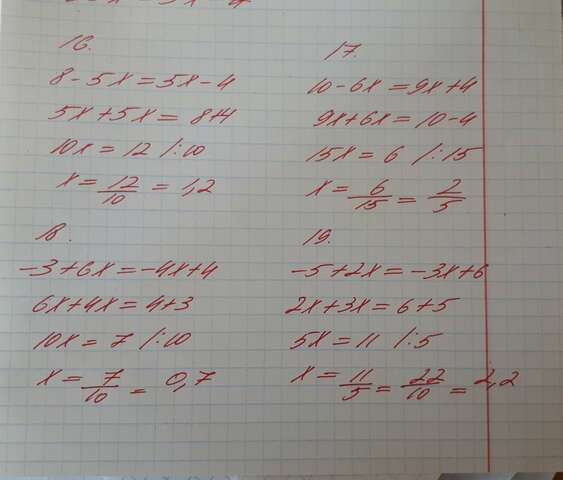 16.
8-5x=5x-4
5x+5x=8+4
10x=12 /:10
x=12/10=1,2
17.
10-6x=9x+4
9x+6x=10-4
15x=6 /:15
x=6/15=2/5
18.
-3+6x=-4x+4
6x+4x=4+3
10x=7 /:10
x=7/10=0,7
19.
-5+2x=-3x+6
2x+3x=6+5
5x=11 /:5
x=11/5=22/10=2,2